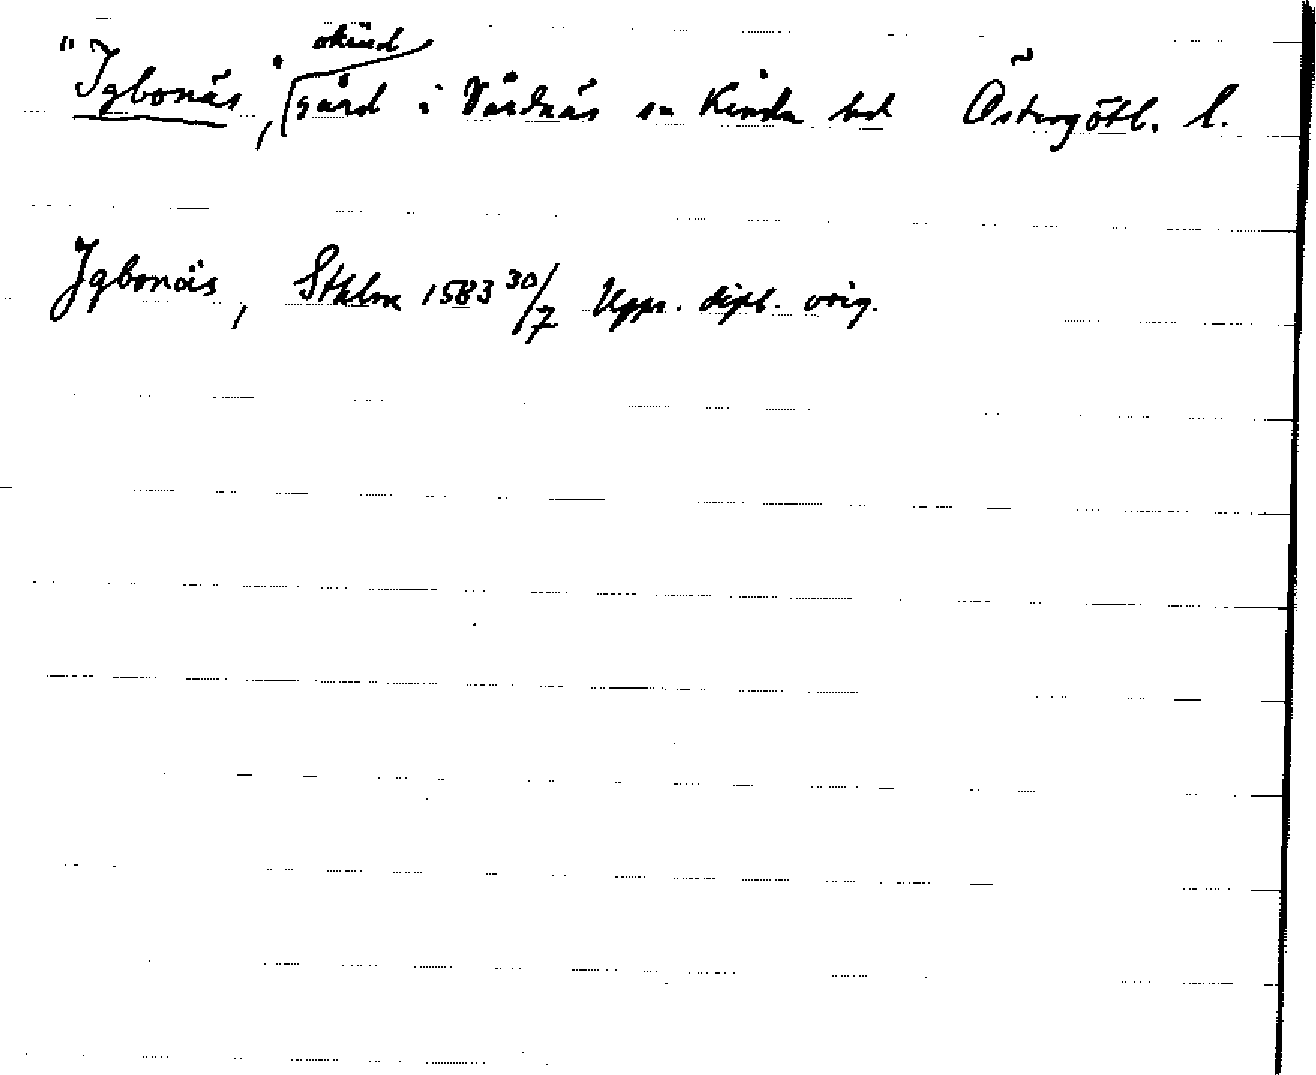 "Igbonäs", okänd gård i Vårdnäs sn Kinda hd Östergötl. l.
Igbonäs, Sthlm 1583 30/7 Upps. dipl. orig.